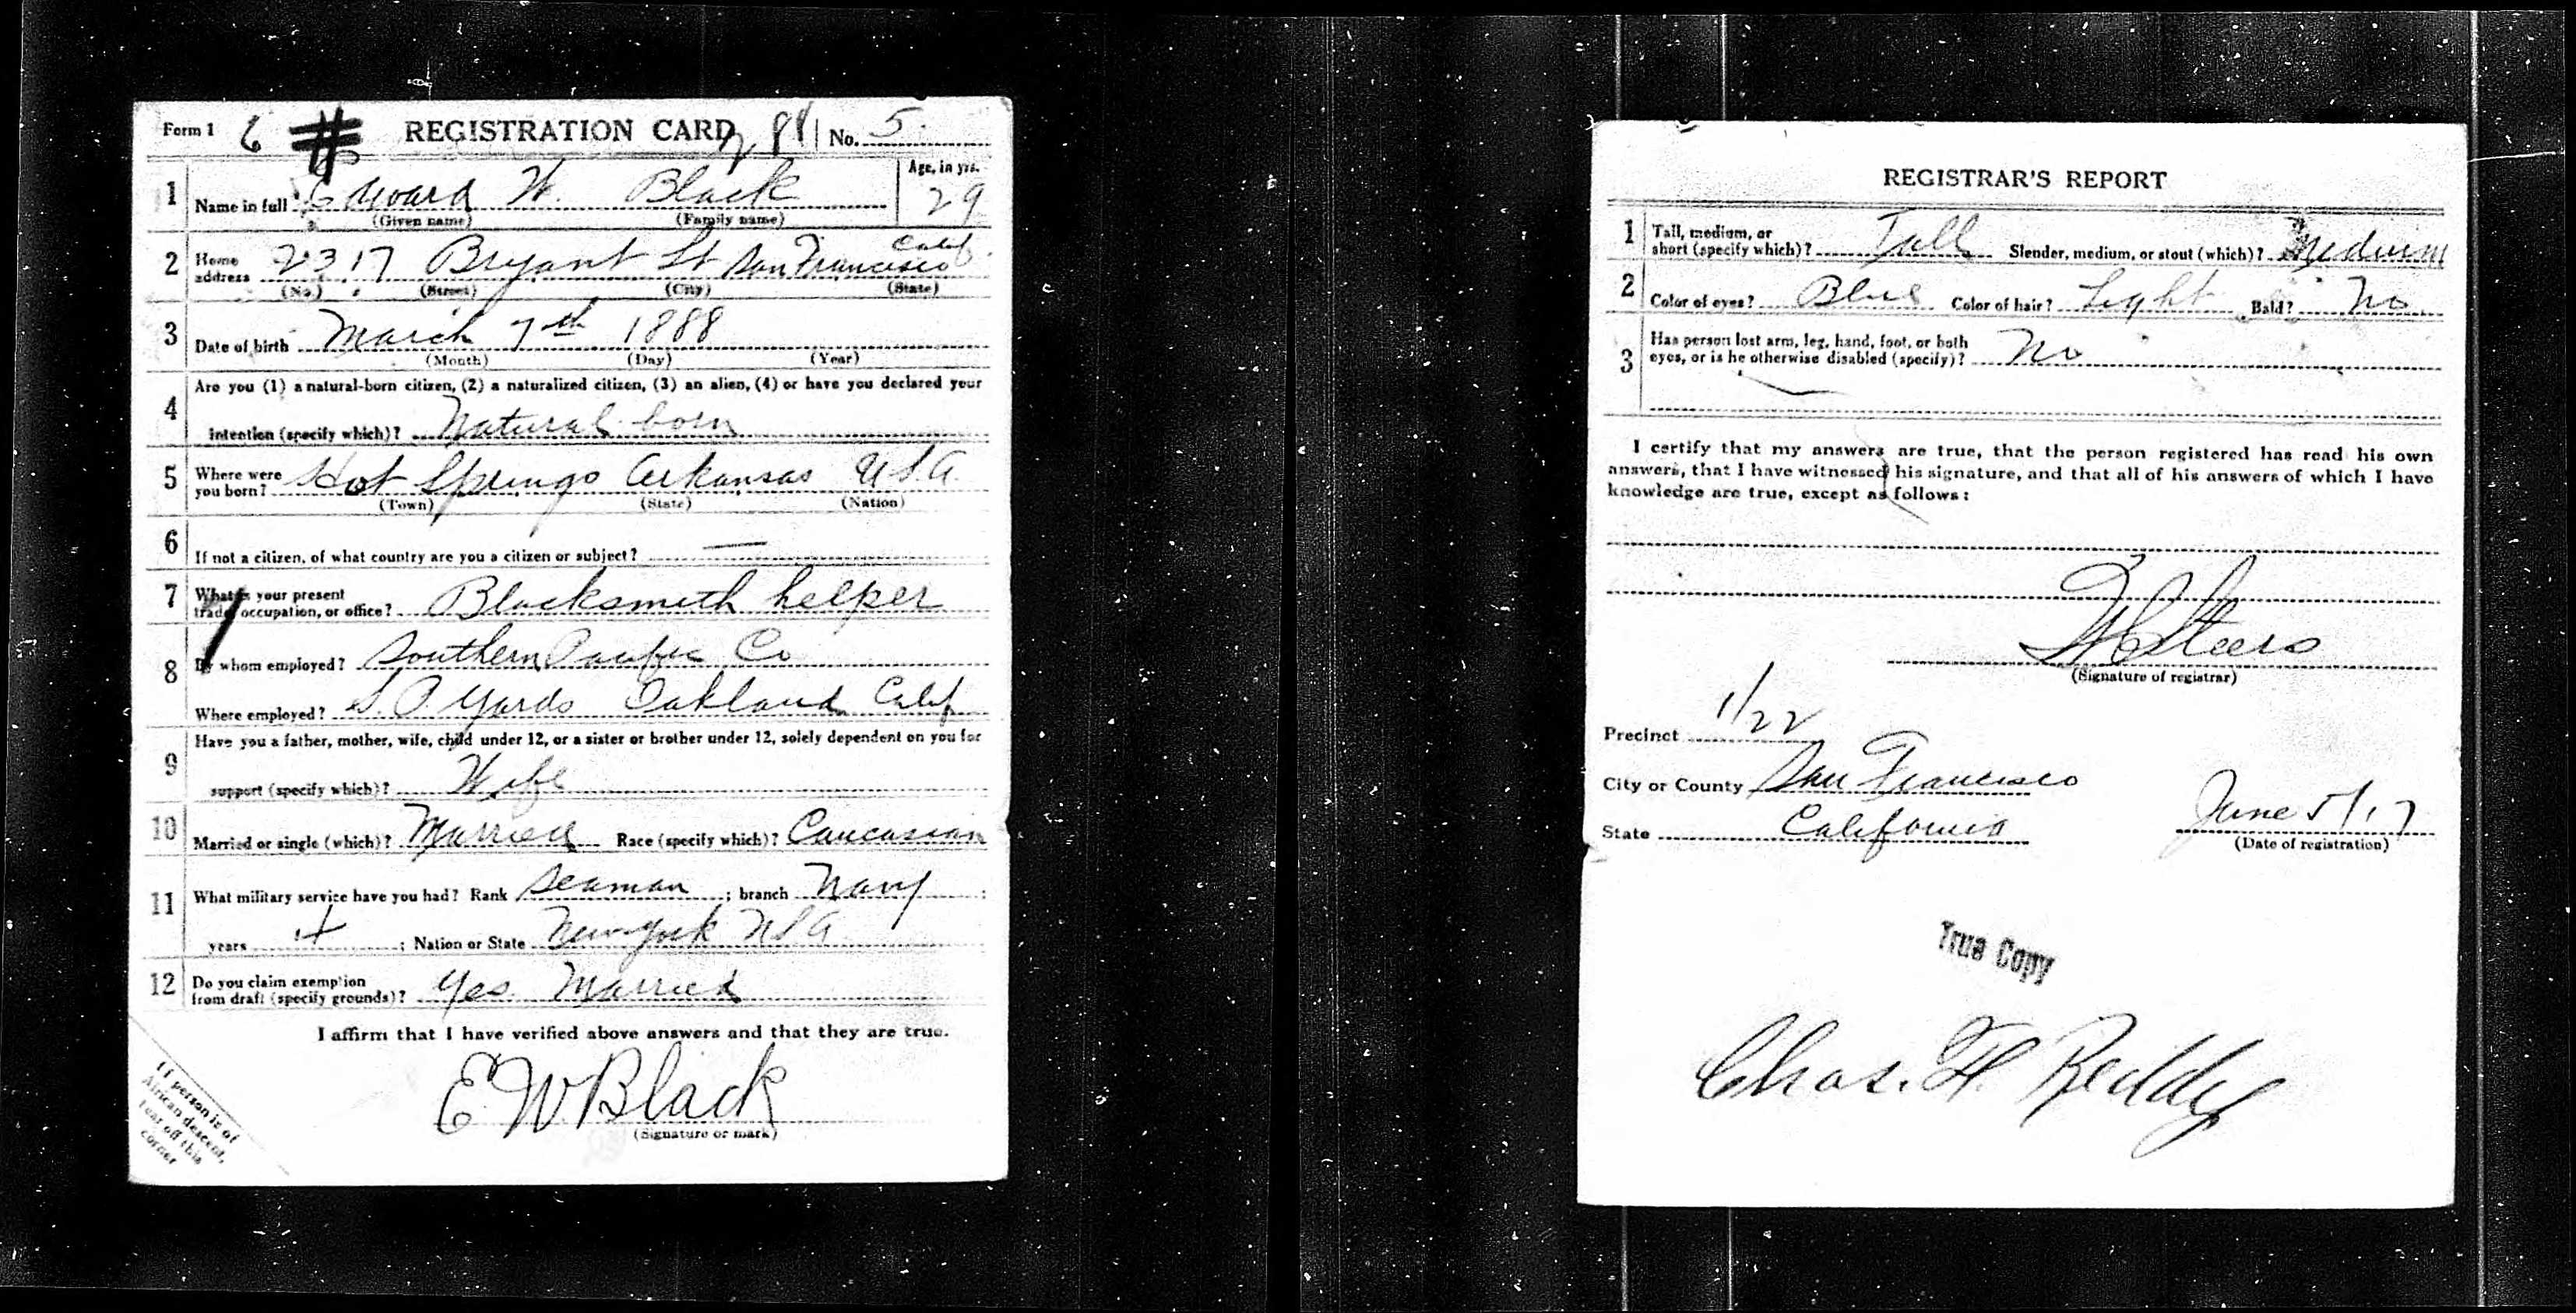 Form 1 6 # REGISTRATION CARD 281 No. 5
1 Name in full Edward W. Black Age, in yrs. 29
(Given name) (Family name)
2 Home address 2317 Bryant St San Francisco Calif.
(No.) (Street) (City) (State)
3 Date of birth March 7th 1888
(Month) (Day) (Year)
4 Are you (1) a natural-born citizen, (2) a naturalized citizen, (3) an alien, (4) or have you declared your
intention (specify which)? Natural born
5 Where were you born? Hot Springs Arkansas U.S.A.
(Town) (State) (Nation)
6 If not a citizen, of what country are you a citizen or subject? —
7 What is your present trade, occupation, or office? Blacksmith helper
8 By whom employed? Southern Pacific Co
Where employed? S. P. Yards Oakland Calif
9 Have you a father, mother, wife, child under 12, or a sister or brother under 12, solely dependent on you for
support (specify which)? Wife
10 Married or single (which)? Married Race (specify which)? Caucasian
11 What military service have you had? Rank Seaman ; branch Navy ;
years 4 ; Nation or State New York USA
12 Do you claim exemption from draft (specify grounds)? Yes. Married
I affirm that I have verified above answers and that they are true.
E. W. Black
(Signature or mark)
If person is of
African descent,
tear off this
corner
REGISTRAR'S REPORT
1 Tall, medium, or short (specify which)? Tall Slender, medium, or stout (which)? Medium
2 Color of eyes? Blue Color of hair? Light Bald? No
3 Has person lost arm, leg, hand, foot, or both eyes, or is he otherwise disabled (specify)? No
I certify that my answers are true, that the person registered has read his own
answers, that I have witnessed his signature, and that all of his answers of which I have
knowledge are true, except as follows:
Steers
(Signature of registrar)
Precinct 1/22
City or County San Francisco
State California June 5/17
(Date of registration)
True Copy
Chas. H. Reddy